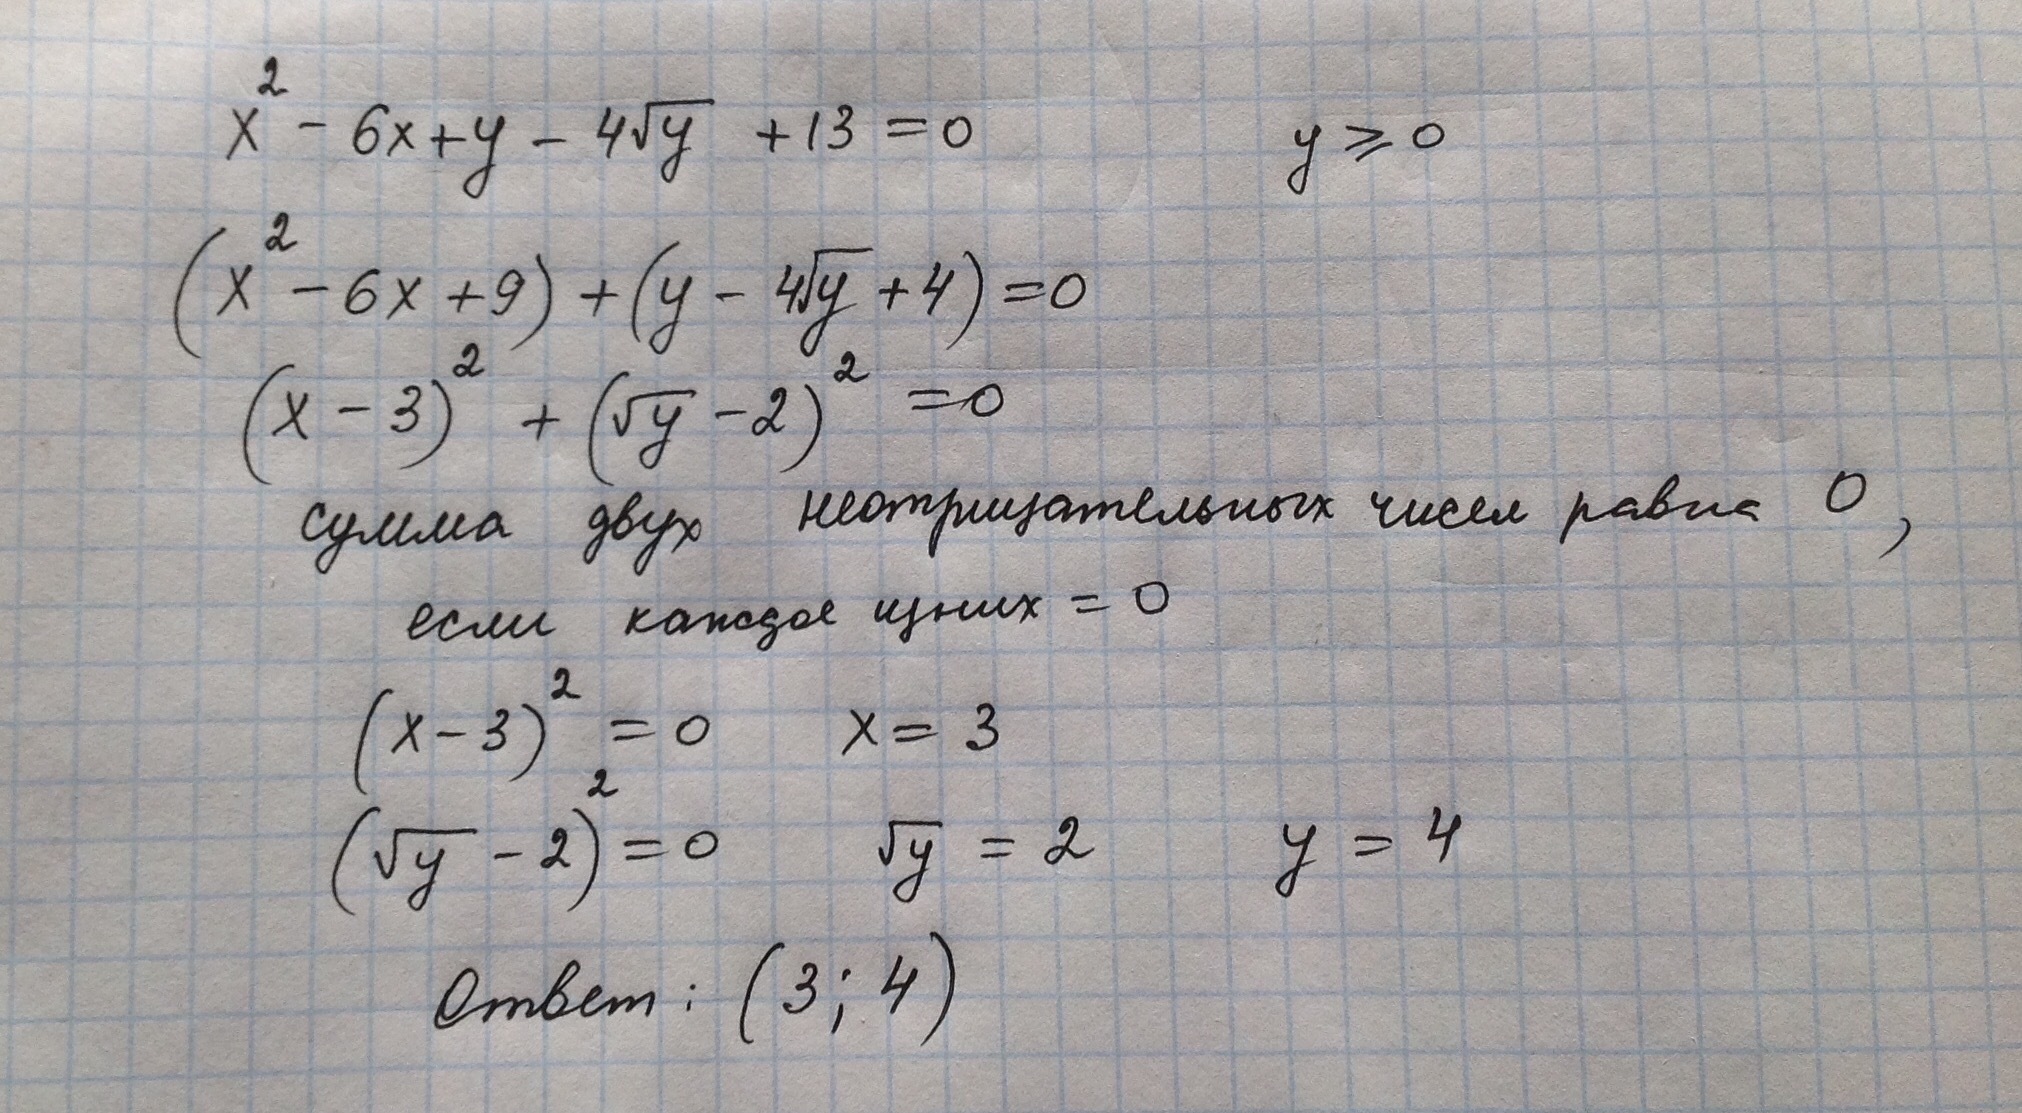 x² - 6x + y - 4√y + 13 = 0 y ⩾ 0
(x² - 6x + 9) + (y - 4√y + 4) = 0
(x - 3)² + (√y - 2)² = 0
сумма двух неотрицательных чисел равна 0,
если каждое из них = 0
(x - 3)² = 0 x = 3
(√y - 2)² = 0 √y = 2 y = 4
Ответ: (3; 4)